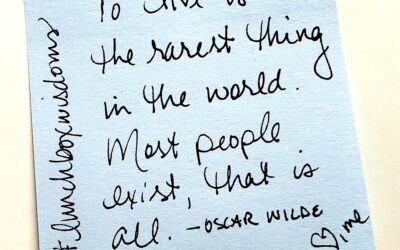 To live is
the rarest thing
in the world.
Most people
exist, that is
all. -OSCAR WILDE
♡, me
#lunchboxwisdoms